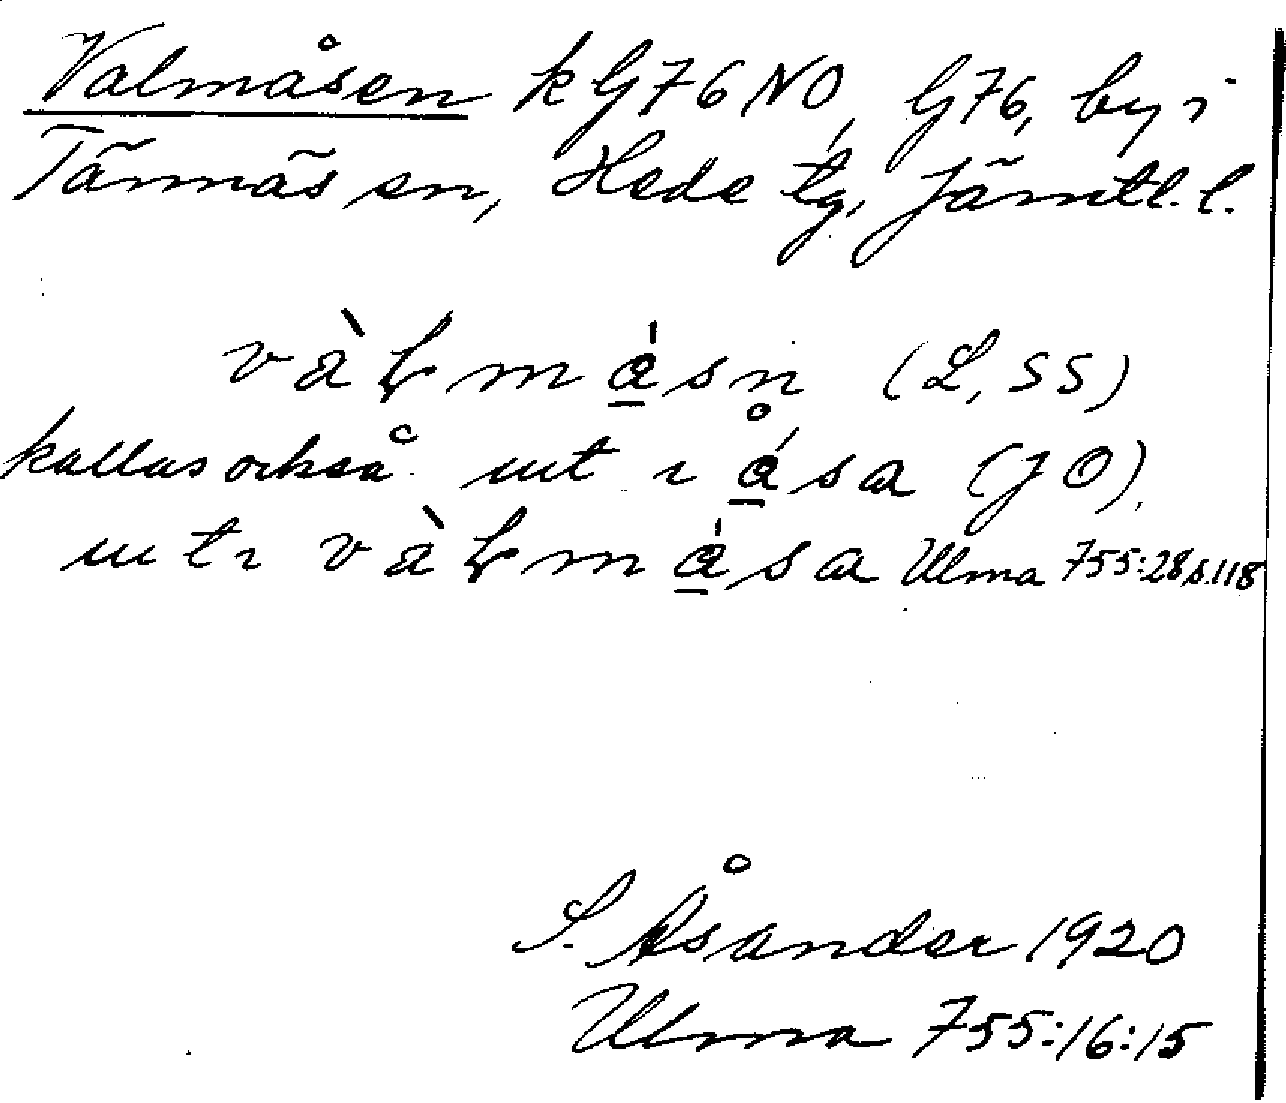 Valmåsen k G76 NO, G76, by i
Tännäs sn, Hede tg, Jämtl. l.
vàɫmǻ̲sn̥ (L, SS)
kallas också ut ı ǻ̲sa (JO),
ut ı vàɫmǻ̲sa Ulma 755:28 s. 118
S. Åsander 1920
Ulma 755:16:15